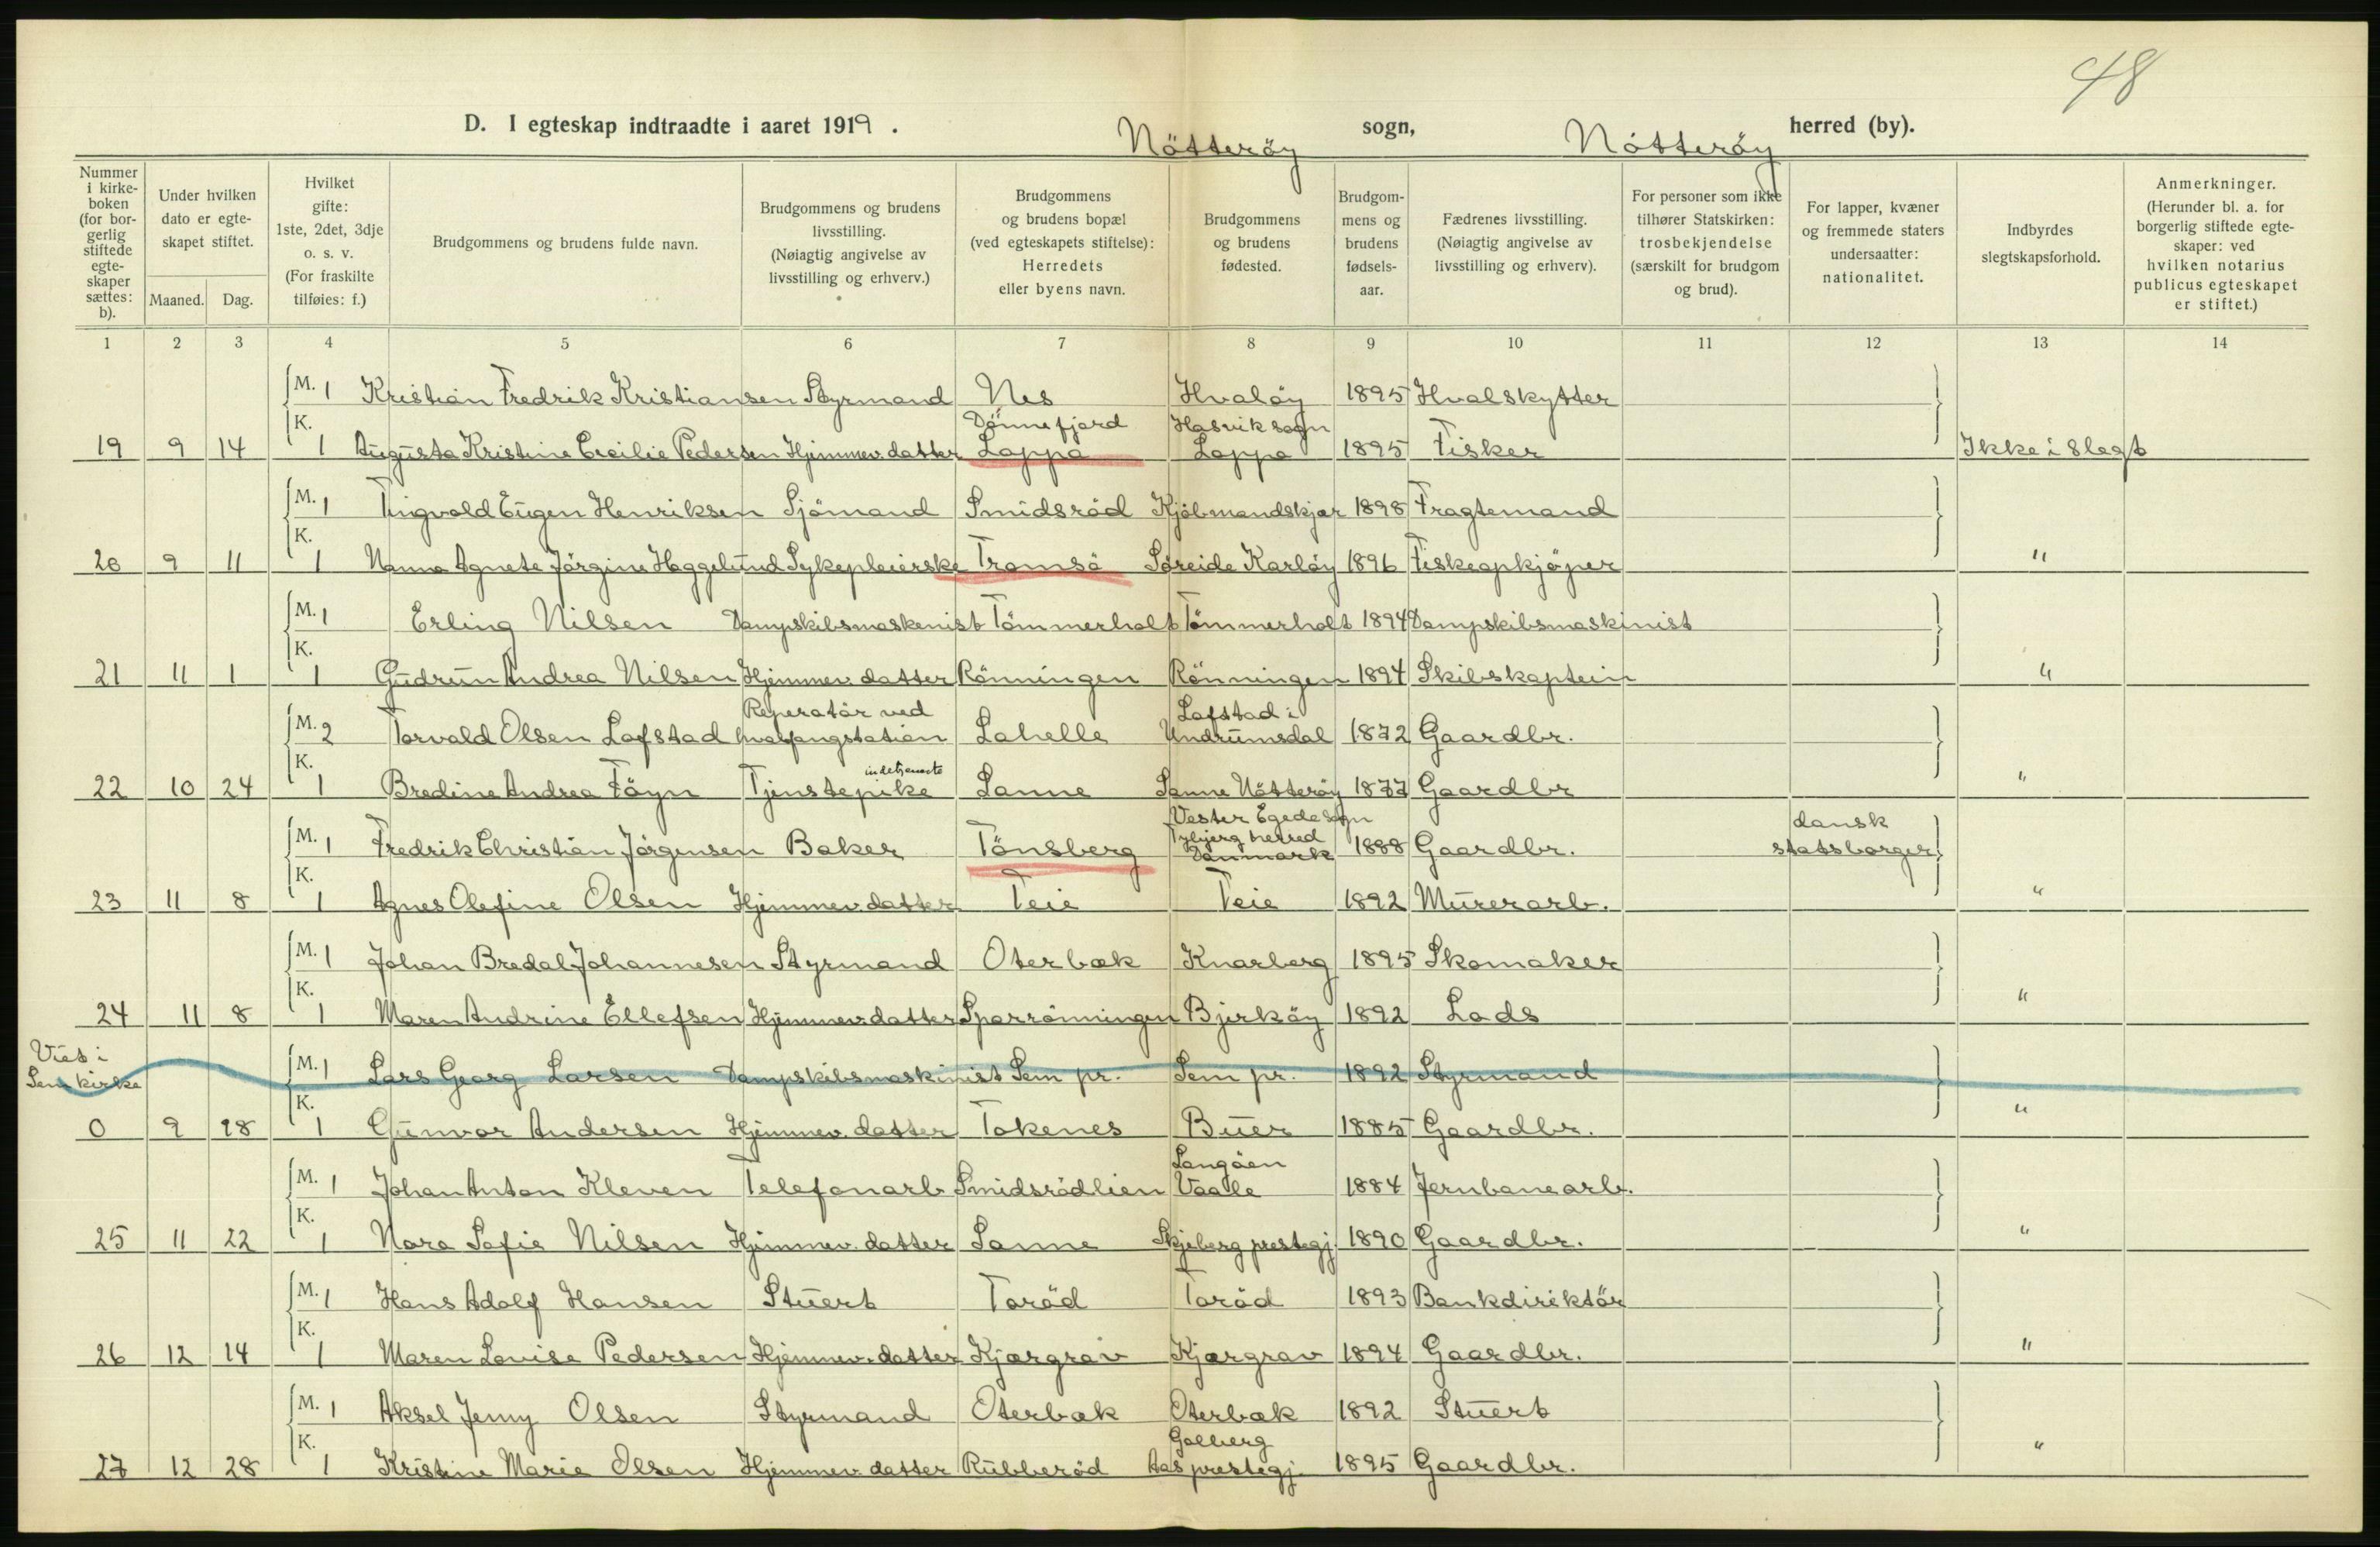 48
D. I egteskap indtraadte i aaret 1919. Nötteröy sogn, Nötteröy herred (by).
Nummer i kirkeboken (for borgerlig stiftede egteskaper sættes: b).
Under hvilken dato er egteskapet stiftet.
Maaned. Dag.
Hvilket gifte: 1ste, 2det, 3dje o. s. v. (For fraskilte tilføies: f.)
Brudgommens og brudens fulde navn.
Brudgommens og brudens livsstilling. (Nøiagtig angivelse av livsstilling og erhverv.)
Brudgommens og brudens bopæl (ved egteskapets stiftelse): Herredets eller byens navn.
Brudgommens og brudens fødested.
Brudgommens og brudens fødselsaar.
Fædrenes livsstilling. (Nøiagtig angivelse av livsstilling og erhverv).
For personer som ikke tilhører Statskirken: trosbekjendelse (særskilt for brudgom og brud).
For lapper, kvæner og fremmede staters undersaatter: nationalitet.
Indbyrdes slegtskapsforhold.
Anmerkninger. (Herunder bl. a. for borgerlig stiftede egteskaper: ved hvilken notarius publicus egteskapet er stiftet.)
1 2 3 4 5 6 7 8 9 10 11 12 13 14
M. 1 Kristian Fredrik Kristiansen Styrmand Nes Hvaløy 1895 Hvalskytter
Dönnefjord Hasvik sogn
19 9 14 K. 1 Augusta Kristine Cecilie Pedersen Hjemmev. datter Loppa Loppa 1895 Fisker Ikke i slegt
M. 1 Tingvald Eugen Henriksen Sjömand Smidsröd Kjöbmandskjær 1898 Fragtemand
20 9 11 K. 1 Nanna Agnete Jörgine Heggelund Sykepleierske Tromsö Söreide Karlöy 1896 Fiskeopkjöper "
M. 1 Erling Nilsen Dampskibsmaskenist Tömmerholt Tömmerholt 1894 Dampskibsmaskinist
21 11 1 K. 1 Gudrun Andrea Nilsen Hjemmev. datter Rönningen Rönningen 1894 Skibskaptein "
Reperatör ved Lofstad i
M. 2 Torvald Olsen Lofstad hvalfangstation Lahelle Undrumsdal 1872 Gaardbr.
indetjeneste
22 10 24 K. 1 Bredine Andrea Föyn Tjenstepike Sanne Sanne Nötteröy 1877 Gaardbr "
Vester Egede sogn dansk
Tybjerg herred
M. 1 Fredrik Christian Jörgensen Baker Tönsberg Danmark 1888 Gaardbr. statsborger
23 11 8 K. 1 Agnes Olefine Olsen Hjemmev. datter Teie Teie 1892 Murerarb. "
M. 1 Johan Bredal Johannesen Styrmand Oterbæk Knarberg 1895 Skomaker
24 11 8 K. 1 Maren Andrine Ellefsen Hjemmev. datter Sparrönningen Bjerköy 1892 Lods "
Viet i
Sem kirke
M. 1 Lars Georg Larsen Dampskibsmaskinist Sem pr. Sem pr. 1892 Styrmand
0 9 28 K. 1 Gunvor Andersen Hjemmev. datter Tokenes Buer 1885 Gaardbr. "
Langöen
M. 1 Johan Anton Kleven Telefonarb Smidsrödlien Vaale 1884 Jernbanearb.
25 11 22 K. 1 Nora Sofie Nilsen Hjemmev. datter Sanne Skjeberg prestegj. 1890 Gaardbr. "
M. 1 Hans Adolf Hansen Stuert Toröd Toröd 1893 Bankdirektör
26 12 14 K. 1 Maren Lovise Pedersen Hjemmev. datter Kjærgrav Kjærgrav 1894 Gaardbr. "
M. 1 Aksel Jenny Olsen Styrmand Oterbæk Oterbæk 1892 Stuert
Golberg
27 12 28 K. 1 Kristine Marie Olsen Hjemmev. datter Rubberöd Aas prestegj. 1895 Gaardbr. "